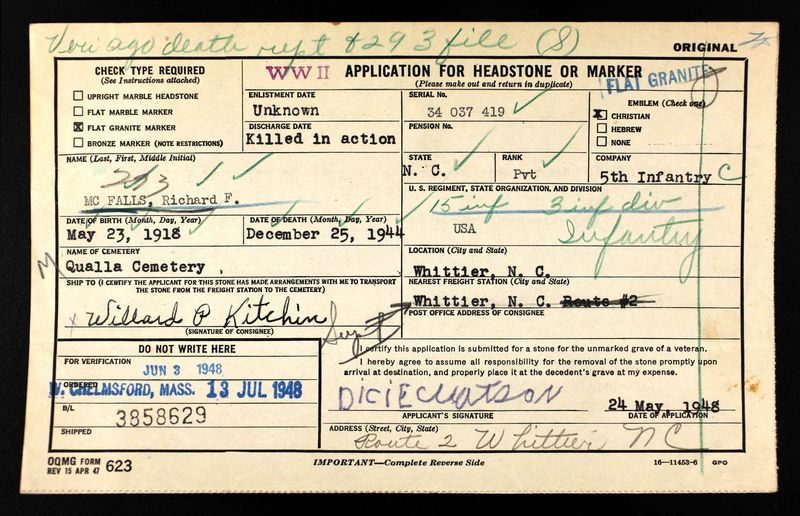 Veri ago death rept 293 file (S)
ORIGINAL
CHECK TYPE REQUIRED
(See Instructions attached)
UPRIGHT MARBLE HEADSTONE
FLAT MARBLE MARKER
X FLAT GRANITE MARKER
BRONZE MARKER (NOTE RESTRICTIONS)
WW II APPLICATION FOR HEADSTONE OR MARKER
(Please make out and return in duplicate)
FLAT GRANITE
ENLISTMENT DATE
Unknown
DISCHARGE DATE
Killed in action
SERIAL No.
34 037 419
PENSION No.
EMBLEM (Check one)
X CHRISTIAN
HEBREW
NONE
NAME (Last, First, Middle Initial)
MC FALLS, Richard F.
STATE
N. C.
RANK
Pvt
COMPANY
5th Infantry C
U. S. REGIMENT, STATE ORGANIZATION, AND DIVISION
15 inf 3 inf div
USA
Infantry
DATE OF BIRTH (Month, Day, Year)
May 23, 1918
DATE OF DEATH (Month, Day, Year)
December 25, 1944
NAME OF CEMETERY
Qualla Cemetery
LOCATION (City and State)
Whittier, N. C.
SHIP TO (I CERTIFY THE APPLICANT FOR THIS STONE HAS MADE ARRANGEMENTS WITH ME TO TRANSPORT
THE STONE FROM THE FREIGHT STATION TO THE CEMETERY)
Willard P Kitchin
(SIGNATURE OF CONSIGNEE)
NEAREST FREIGHT STATION (City and State)
Whittier, N. C. Route #2
POST OFFICE ADDRESS OF CONSIGNEE
DO NOT WRITE HERE
FOR VERIFICATION
JUN 3 1948
ORDERED
W. CHELMSFORD, MASS. 13 JUL 1948
B/L
3858629
SHIPPED
I certify this application is submitted for a stone for the unmarked grave of a veteran.
I hereby agree to assume all responsibility for the removal of the stone promptly upon
arrival at destination, and properly place it at the decedent's grave at my expense.
DICIE Watson
24 May, 1948
APPLICANT'S SIGNATURE
DATE OF APPLICATION
ADDRESS (Street, City, State)
Route 2 Whittier NC
OQMG FORM
REV 15 APR 47 623
IMPORTANT—Complete Reverse Side
16—11453-6 GPO